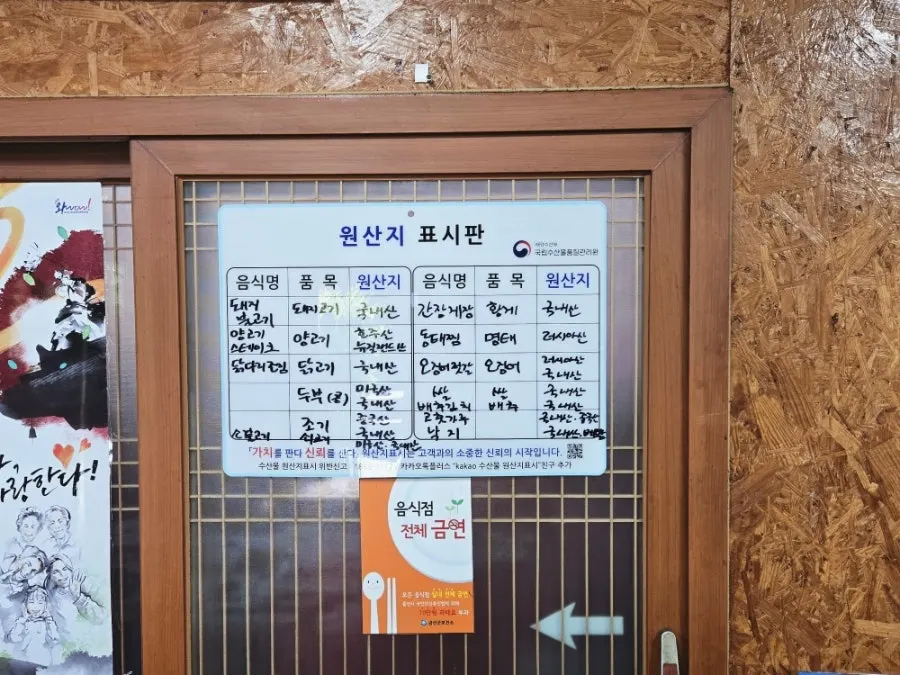 원산지 표시판
국립수산물품질관리원
음식명 품 목 원산지 음식명 품 목 원산지
돼지 불고기 돼지고기 국내산 간장게장 황게 국내산
양고기 스테이크 양고기 호주산 뉴질랜드산 동태찜 명태 러시아산
닭고기 국내산 오징어젓갈 오징어 러시아산 국내산
두부 (콩) 미국산 국내산 쌀 쌀 국내산
배추김치 배추 국내산
조기 중국산 고춧가루 국내산·중국산
국내산 낙지 국내산
소불고기 미국산·국내산
「가치를 판다 신뢰를 산다. 원산지표시는 고객과의 소중한 신뢰의 시작입니다.
수산물 원산지표시 위반신고 카카오톡플러스 "kakao 수산물 원산지표시"친구 추가
음식점
전체 금연
모든 음식점 실내 전체 금연
사랑한다!